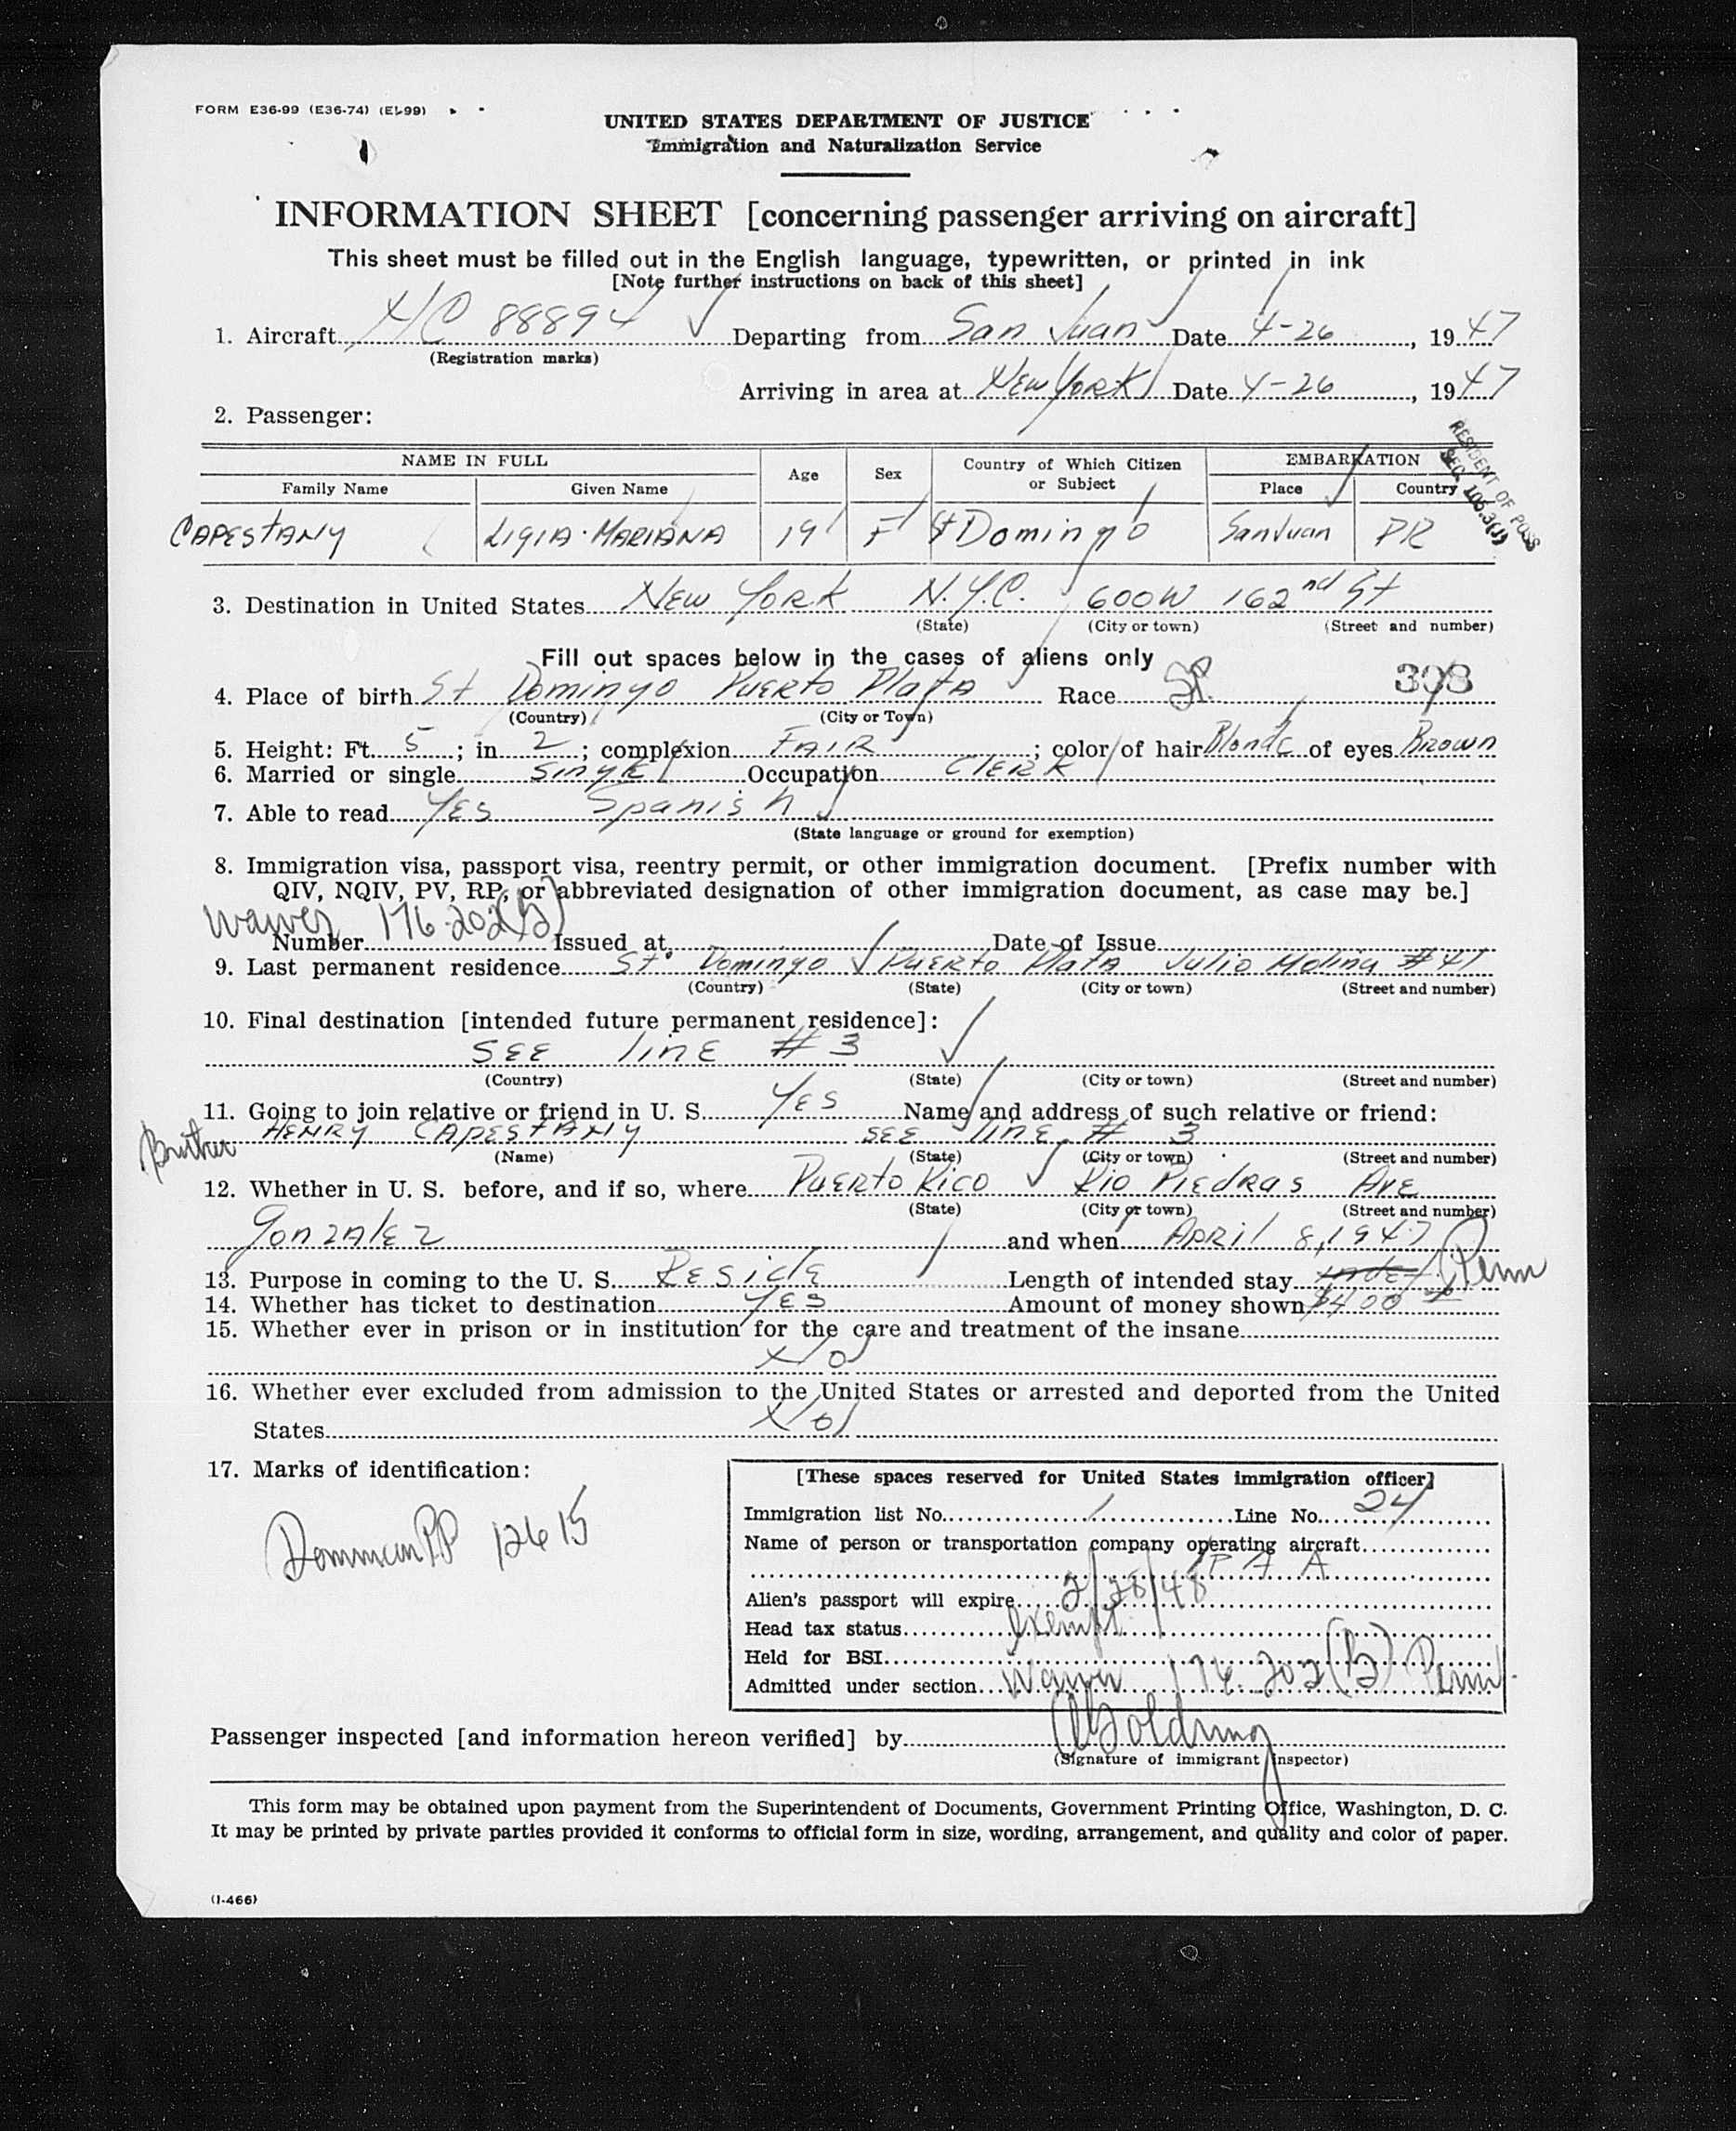 FORM E36-99 (E36-74) (EL-99)
UNITED STATES DEPARTMENT OF JUSTICE
Immigration and Naturalization Service
INFORMATION SHEET [concerning passenger arriving on aircraft]
This sheet must be filled out in the English language, typewritten, or printed in ink
[Note further instructions on back of this sheet]
1. Aircraft NC 88894 Departing from San Juan Date 4-26, 1947
(Registration marks)
Arriving in area at New York Date 4-26, 1947
2. Passenger:
RESIDENT OF POSS
SEC. 105.3(J)
NAME IN FULL Age Sex Country of Which Citizen or Subject EMBARKATION
Family Name Given Name Place Country
CAPESTANY LIGIA MARIANA 19 F St Domingo San Juan PR
3. Destination in United States New York N.Y.C. 600W 162nd St
(State) (City or town) (Street and number)
Fill out spaces below in the cases of aliens only
308
4. Place of birth St Domingo Puerto Plata Race Sp.
(Country) (City or Town)
5. Height: Ft. 5; in 2; complexion FAIR; color of hair Blonde of eyes Brown
6. Married or single Single Occupation CLERK
7. Able to read Yes Spanish
(State language or ground for exemption)
8. Immigration visa, passport visa, reentry permit, or other immigration document. [Prefix number with
QIV, NQIV, PV, RP, or abbreviated designation of other immigration document, as case may be.]
Waiver 176.202(b)
Number Issued at Date of Issue
9. Last permanent residence St. Domingo Puerto Plata Julio Molina #47
(Country) (State) (City or town) (Street and number)
10. Final destination [intended future permanent residence]:
SEE line #3
(Country) (State) (City or town) (Street and number)
11. Going to join relative or friend in U. S. Yes Name and address of such relative or friend:
Brother HENRY CAPESTANY SEE line # 3
(Name) (State) (City or town) (Street and number)
12. Whether in U. S. before, and if so, where Puerto Rico Rio Piedras Ave
(State) (City or town) (Street and number)
Gonzalez and when April 8, 1947
13. Purpose in coming to the U. S. Reside Length of intended stay Indef. Perm
14. Whether has ticket to destination YES Amount of money shown $400
15. Whether ever in prison or in institution for the care and treatment of the insane
No
16. Whether ever excluded from admission to the United States or arrested and deported from the United
States No
17. Marks of identification:
Dominican PP 12615
[These spaces reserved for United States immigration officer]
Immigration list No. 1 Line No. 24
Name of person or transportation company operating aircraft
P A A
Alien's passport will expire 2/28/48
Head tax status exempt
Held for BSI
Admitted under section Waiver 176.202(b) Perm.
Passenger inspected [and information hereon verified] by Goldring
(Signature of immigrant inspector)
This form may be obtained upon payment from the Superintendent of Documents, Government Printing Office, Washington, D. C.
It may be printed by private parties provided it conforms to official form in size, wording, arrangement, and quality and color of paper.
(I-466)